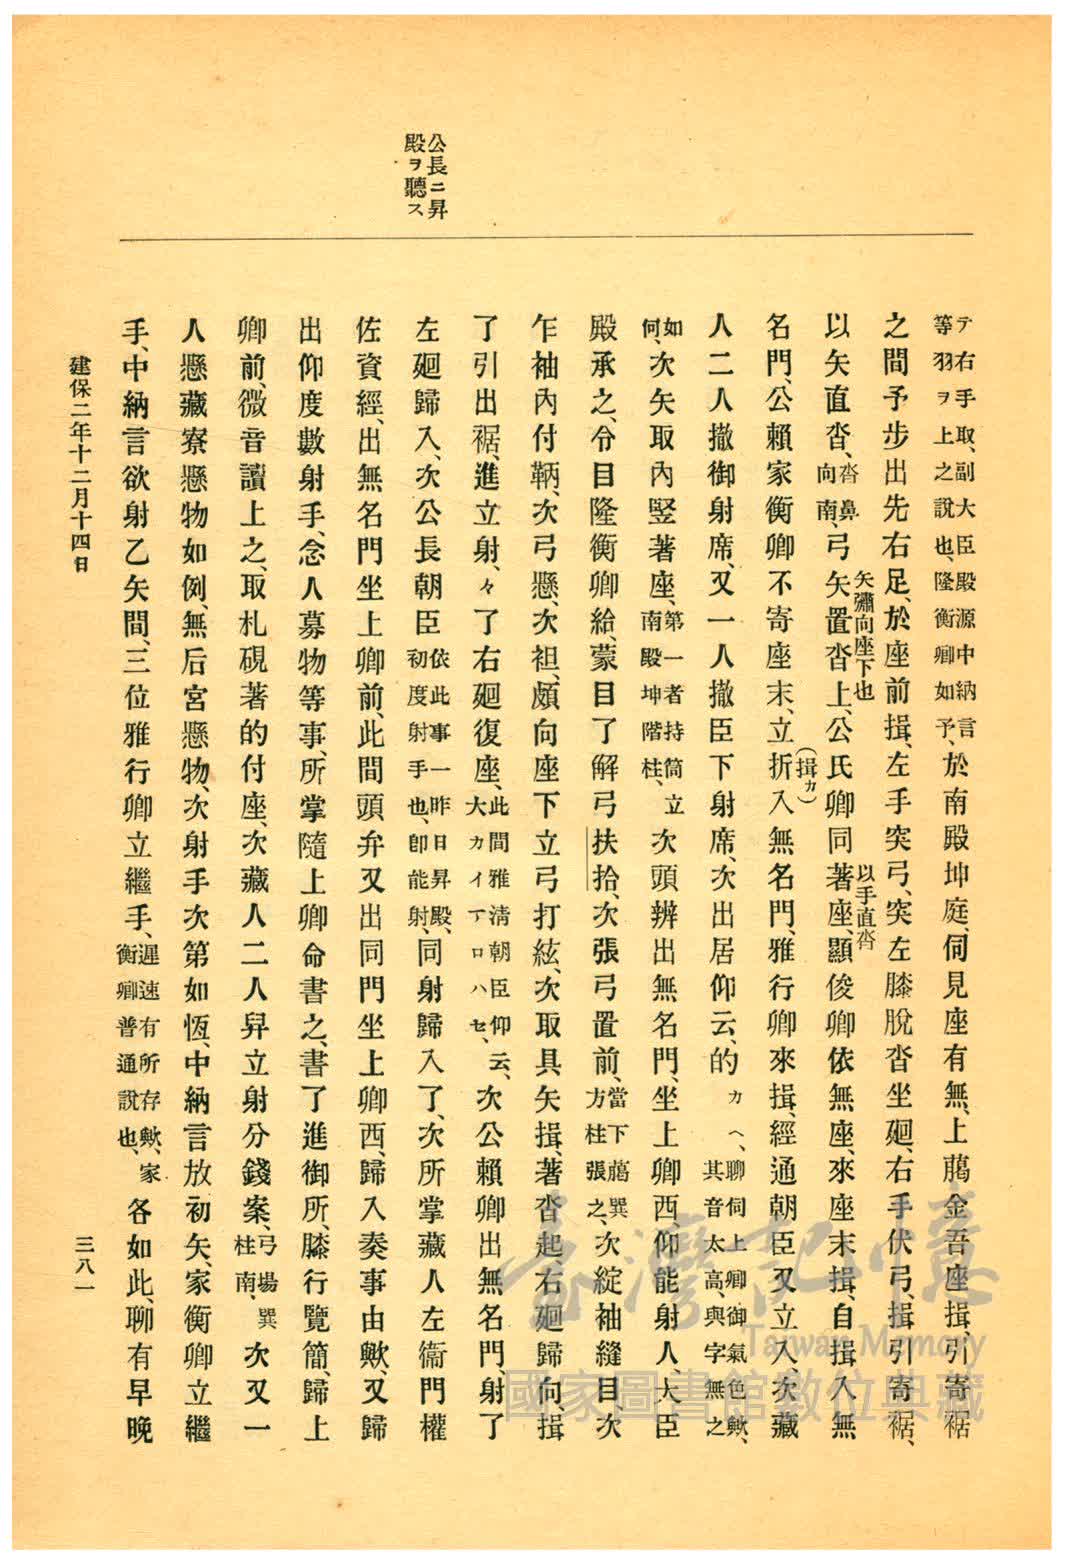 公長ニ昇
殿ヲ聽ス
テ右手取、副大臣殿源中納言
等羽ヲ上之說也、隆衡卿如予、於南殿坤庭、伺見座有無、上﨟金吾座揖、引寄裾
之間予步出先右足、於座前揖、左手突弓、突左膝脫沓坐廻、右手伏弓、揖引寄裾、
以矢直沓、沓鼻向南、弓矢置沓上、矢彇向座下也公氏卿同著座、以手直沓顯俊卿依無座、來座末揖、自揖入無
名門、公賴家衡卿不寄座末、立折(揖カ)入無名門、雅行卿來揖、經通朝臣又立入、次藏
人二人撤御射席、又一人撤臣下射席、次出居仰云、的カヘ、聊伺上卿御氣色歟、其音太高、與字無之
如何、次矢取內竪著座、第一者持筒立南殿坤階柱、次頭辨出無名門、坐上卿西仰能射人、大臣
殿承之、令目隆衡卿給、蒙目了解弓扶拾、次張弓置前、當下﨟巽方柱張之、次綻袖縫目、次
乍袖內付鞆、次弓懸、次袒、頗向座下立弓打絃、次取具矢揖、著沓起右廻歸向、揖
了引出裾、進立射、々了右廻復座、此間雅清朝臣仰云、大カイ丅ロハセ、次公賴卿出無名門、射了
左廻歸入、次公長朝臣依此事一昨日昇殿、初度射手也、卽能射、同射歸入了、次所掌藏人左衞門權
佐資經、出無名門坐上卿前、此間頭弁又出同門坐上卿西、歸入奏事由歟、又歸
出仰度數射手、念人募物等事、所掌隨上卿命書之、書了進御所、膝行覽簡、歸上
卿前、微音讀上之、取札硯著的付座、次藏人二人舁立射分錢案、弓場巽柱南、次又一
人懸藏寮懸物如例、無后宮懸物、次射手次第如恆、中納言放初矢、家衡卿立繼
手、中納言欲射乙矢間、三位雅行卿立繼手、遲速有所存歟、家衡卿普通說也、各如此、聊有早晚
建保二年十二月十四日
三八一
臺灣記憶
Taiwan Memory
國家圖書館數位典藏